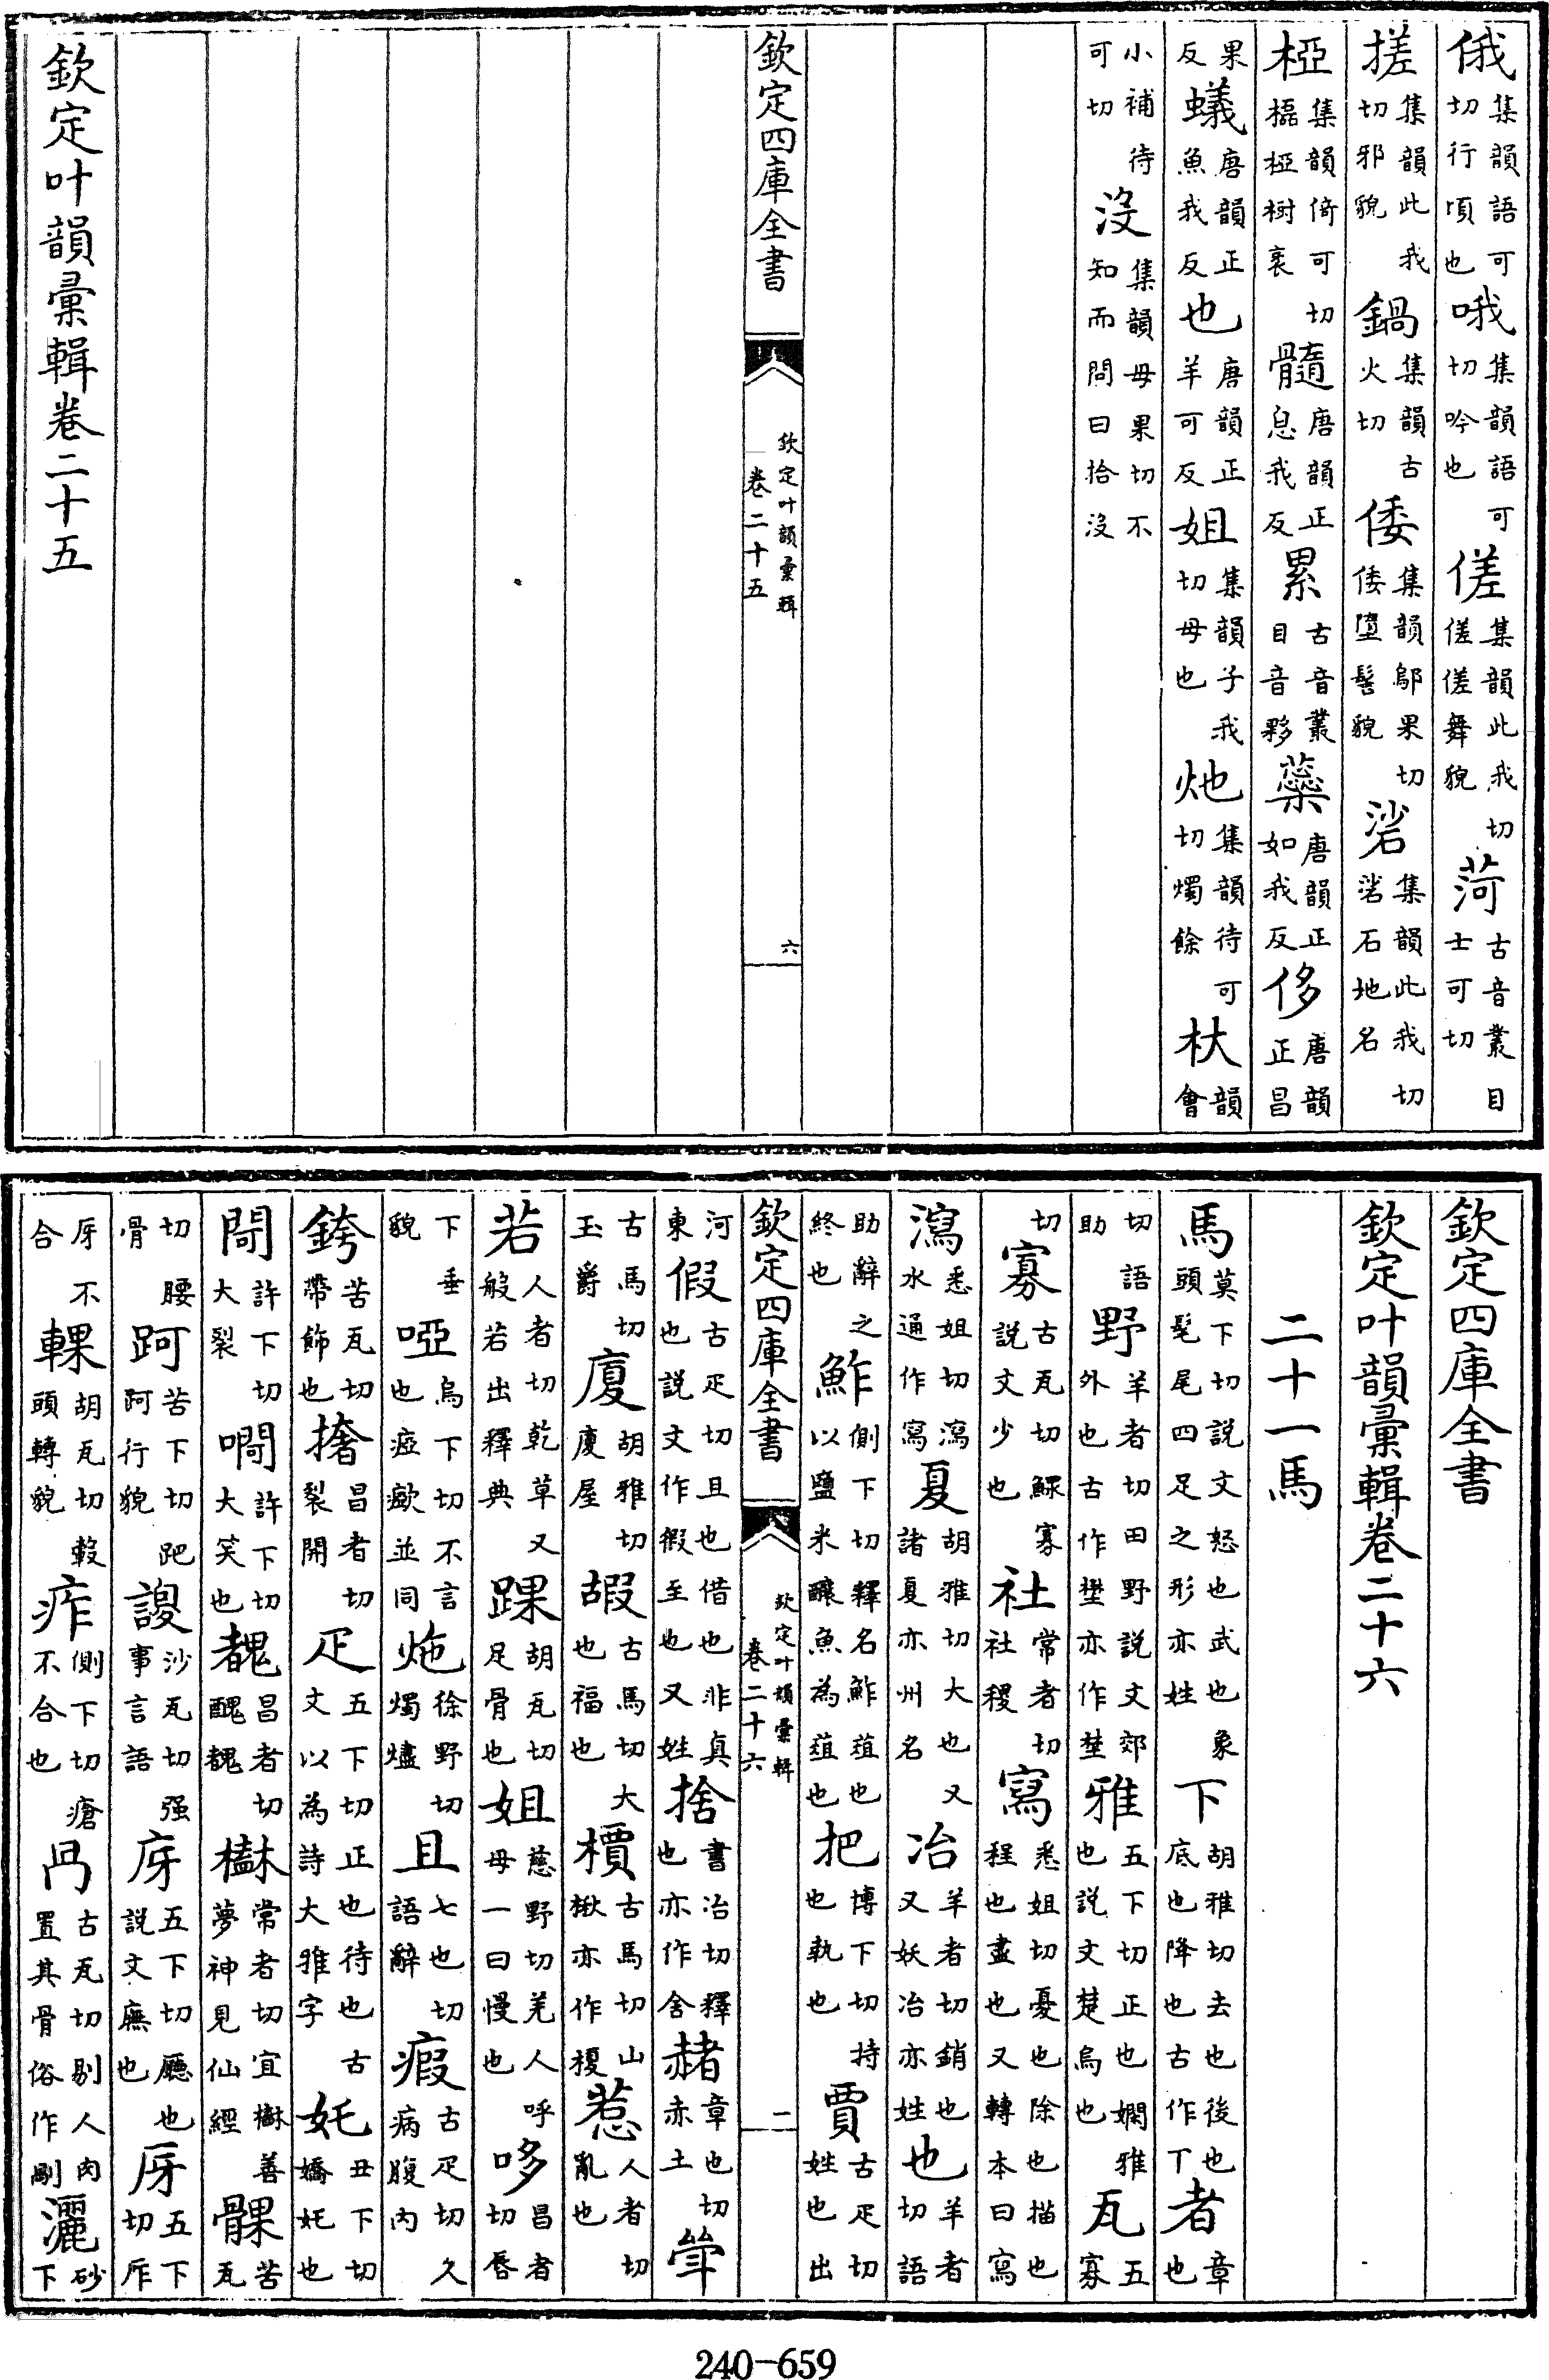 俄集韻語可切行頃也哦集韻語可切吟也傞集韻此我切傞傞舞貌菏古音叢目士可切
搓集韻此我切邪貌鍋集韻古火切倭集韻鄔果切倭墮髻貌硰集韻此我切硰石地名
椏集韻倚可切椏樹衺髓唐韻正息我反累古音叢目音夥蘂唐韻正如我反侈唐韻正昌
果反蟻唐韻正魚我反也唐韻正羊可反姐集韻子我切母也灺集韻待可切燭餘杕韻會
小補待可切沒集韻毋果切不知而問曰拾沒
欽定四庫全書 欽定叶韻彙輯卷二十五 六
欽定叶韻彙輯卷二十五
欽定四庫全書
欽定叶韻彙輯卷二十六
二十一馬
馬莫下切說文怒也武也象頭髦尾四足之形亦姓下胡雅切去也後也底也降也古作丅者章也
切語助野羊者切田野說文郊外也古作壄亦作埜雅五下切正也嫻雅也說文楚烏也瓦五寡
切寡古瓦切鰥寡說文少也社常者切社稷寫悉姐切憂也除也描也程也盡也又轉本曰寫
瀉悉姐切瀉水通作寫夏胡雅切大也又諸夏亦州名冶羊者切銷也又妖冶亦姓也羊者切語
助辭之終也鮓側下切釋名鮓葅也以鹽米釀魚為葅也把博下切持也執也賈古疋切姓也出
欽定四庫全書 欽定叶韻彙輯卷二十六 二
河東假古疋切且也借也非真也說文作徦至也又姓捨書冶切釋也亦作舍赭章也切赤土斝
古馬切玉爵廈胡雅切廈屋嘏古馬切大也福也檟古馬切山楸亦作榎惹人者切亂也
若人者切乾草又般若出釋典踝胡瓦切足骨也姐慈野切羌人呼母一曰慢也哆昌者切唇
下垂貌啞烏下切不言也瘂並同炧徐野切燭燼且七也切語辭瘕古疋切久病腹內
銙苦瓦切帶飾也撦昌者切裂開疋五下切正也待也古文以為詩大雅字奼丑下切嬌奼也
閜許下切大裂㗿許下切大笑也䰩昌者切醜䰩常者切宜善夢神見仙經髁苦瓦
切腰骨跒苦下切跁跒行貌謏沙瓦切强事言語庌五下切廳也說文廡也厊五下切厏
厊不合輠胡瓦切轂頭轉貌痄側下切瘡不合也冎古瓦切剔人肉置其骨俗作剮灑砂下
240-659